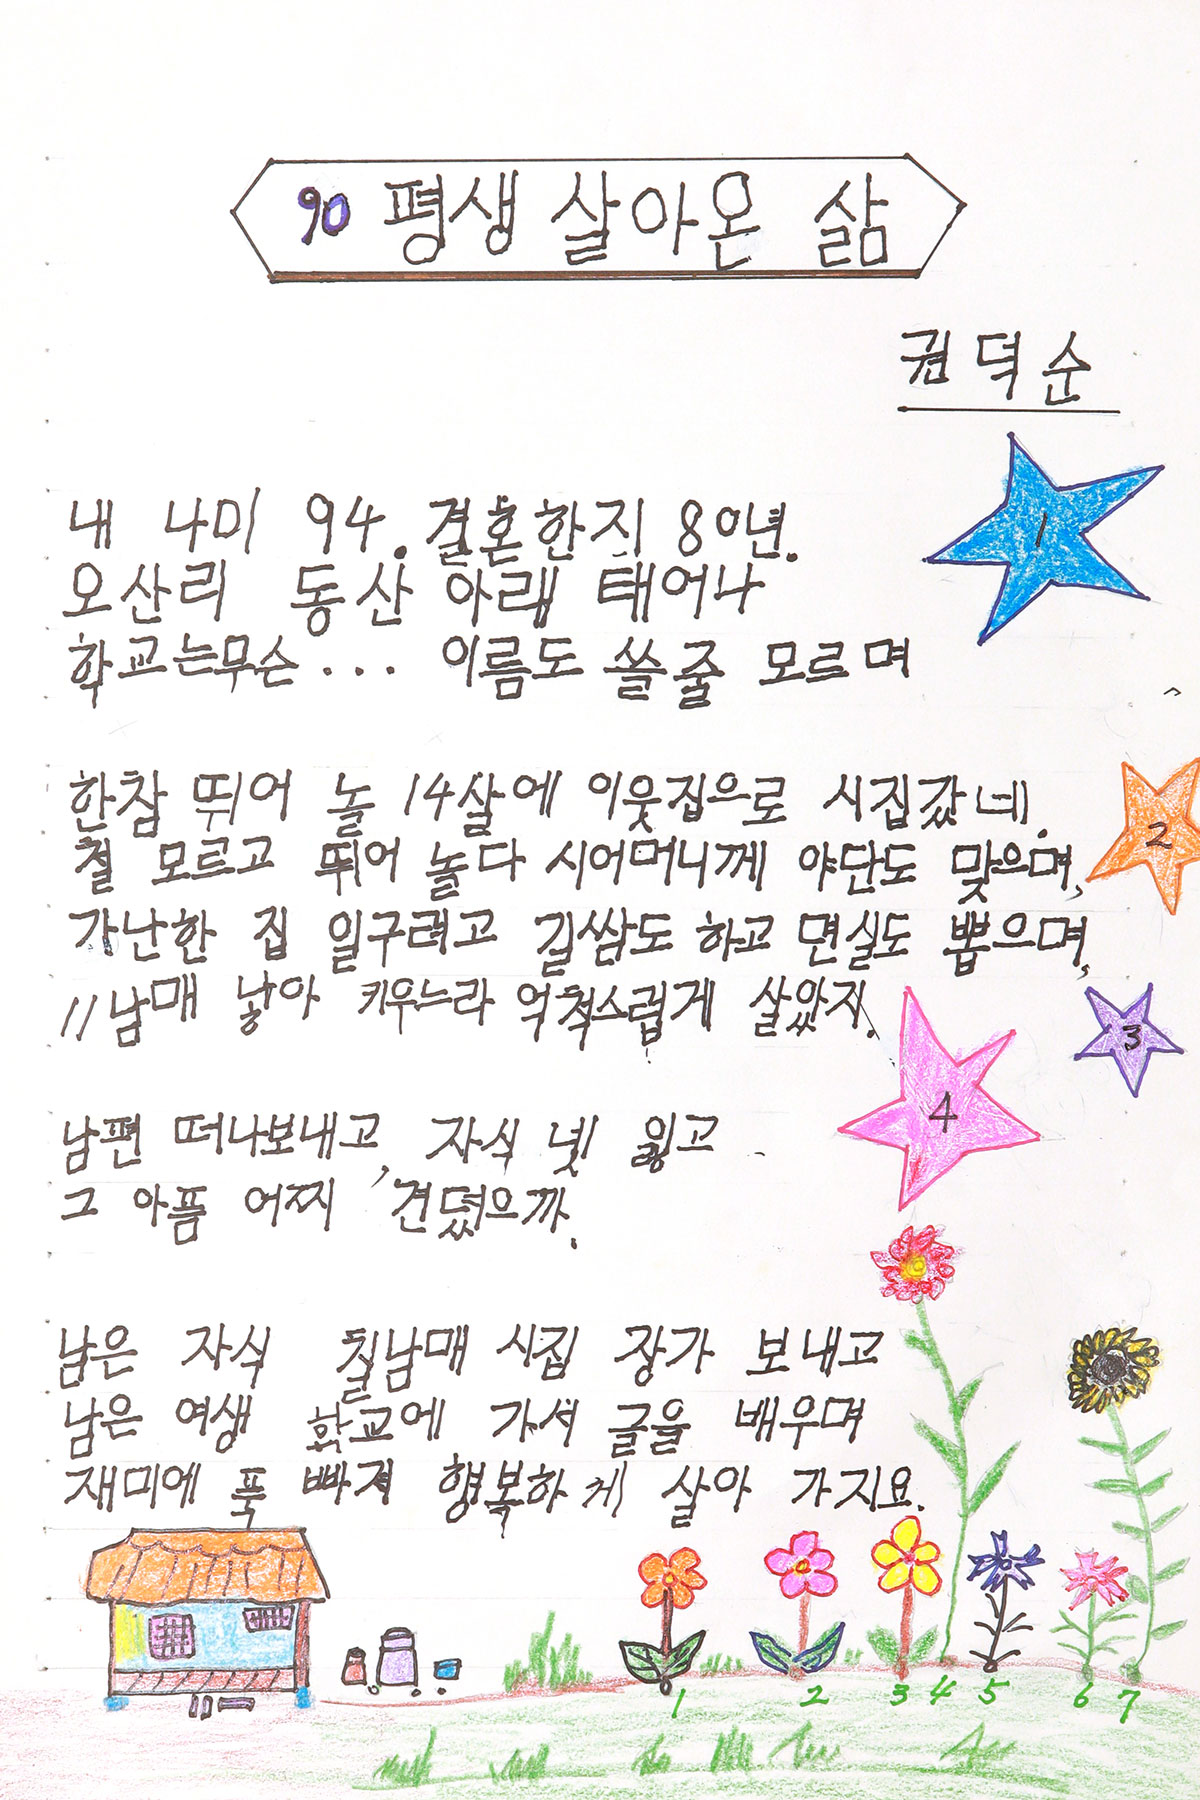 90 평생 살아온 삶
권덕순
내 나미 94. 결혼한지 80년.
오산리 동산 아래 태어나
학교는무슨... 이름도 쓸 줄 모르며
한참 뛰어 놀 14살에 이웃집으로 시집갔네.
철 모르고 뛰어 놀다 시어머니께 야단도 맞으며,
가난한 집 일구려고 길쌈도 하고 면실도 뽑으며,
11남매 낳아 키우느라 억척스럽게 살았지.
남편 떠나보내고, 자식 넷 잃고
그 아픔 어찌 견뎠으까.
남은 자식 칠남매 시집 장가 보내고
남은 여생 학교에 가서 글을 배우며
재미에 푹 빠져 행복하게 살아 가지요.
1
2
3
4
1 2 3 4 5 6 7